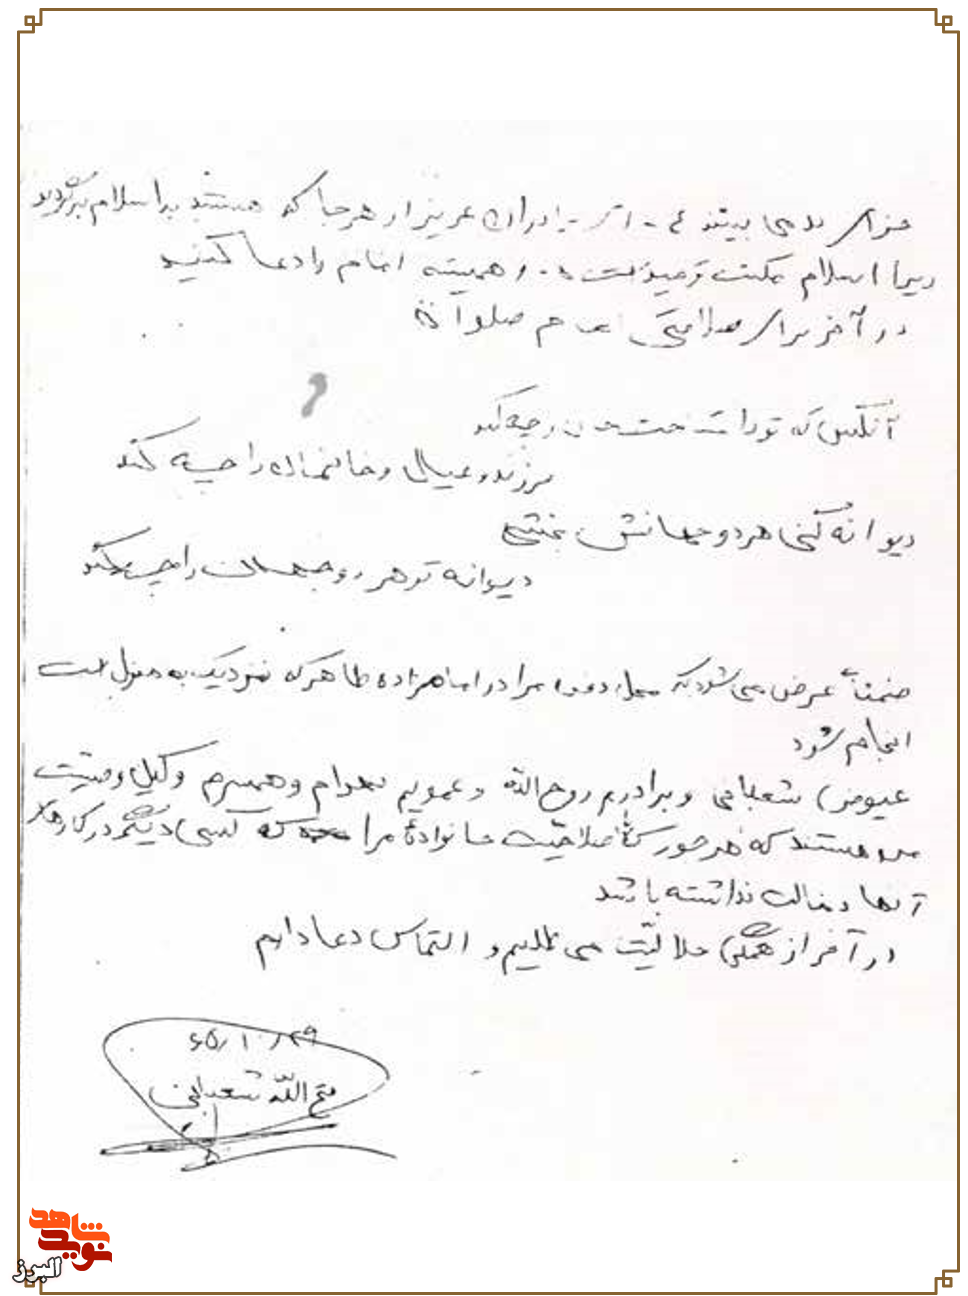 سزای بد می بینند ۴ - ای برادران عزیز از هر جا که هستید به اسلام برگردید
زیرا اسلام مکتب توحید است ۵ - همیشه امام را دعا کنید
در آخر برای سلامتی امام صلوات
آنکس که تو را شناخت جان را چه کند
فرزند و عیال و خانمان را چه کند
دیوانه کنی هر دو جهانش بخشی
دیوانه تو هر دو جهان را چه کند
ضمناً عرض می شود که محل دفن مرا در امامزاده طاهر که نزدیک به منزل است
انجام شود
عیوض شعبانی و برادرم روح الله و عمویم و همسرم وکیل و وصیت
من هستند که هر جور که صلاحیت خانواده مرا که کسی دیگر در کارهای
آنها دخالت نداشته باشد
در آخر از همگی حلالیت می طلبم و التماس دعا دارم
۶۵/۱۰/۲۹
فتح الله شعبانی
نوید شاهد
البرز